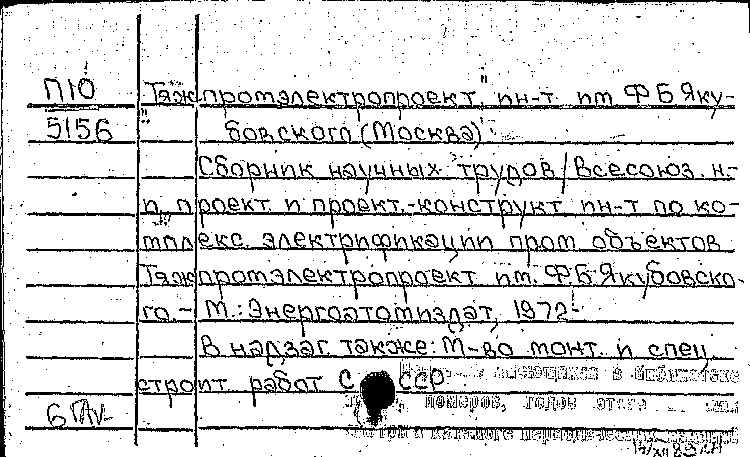 П10 "Тяжпромэлектропроект", ин-т им Ф Б Яку-
5156 бовского (Москва)
Сборник научных трудов / Всесоюз. н-
и. проект и проект.-конструкт ин-т по ко-
мплекс. электрификации пром объектов
Тяжпромэлектропроект им. Ф.Б.Якубовско-
го. - М.: Энергоатомиздат, 1972-
В надзаг. также: М-во монт. и спец
строит работ СССР
имеющихся в библиотеке
номеров, годов этого
каталоге периодических изданий